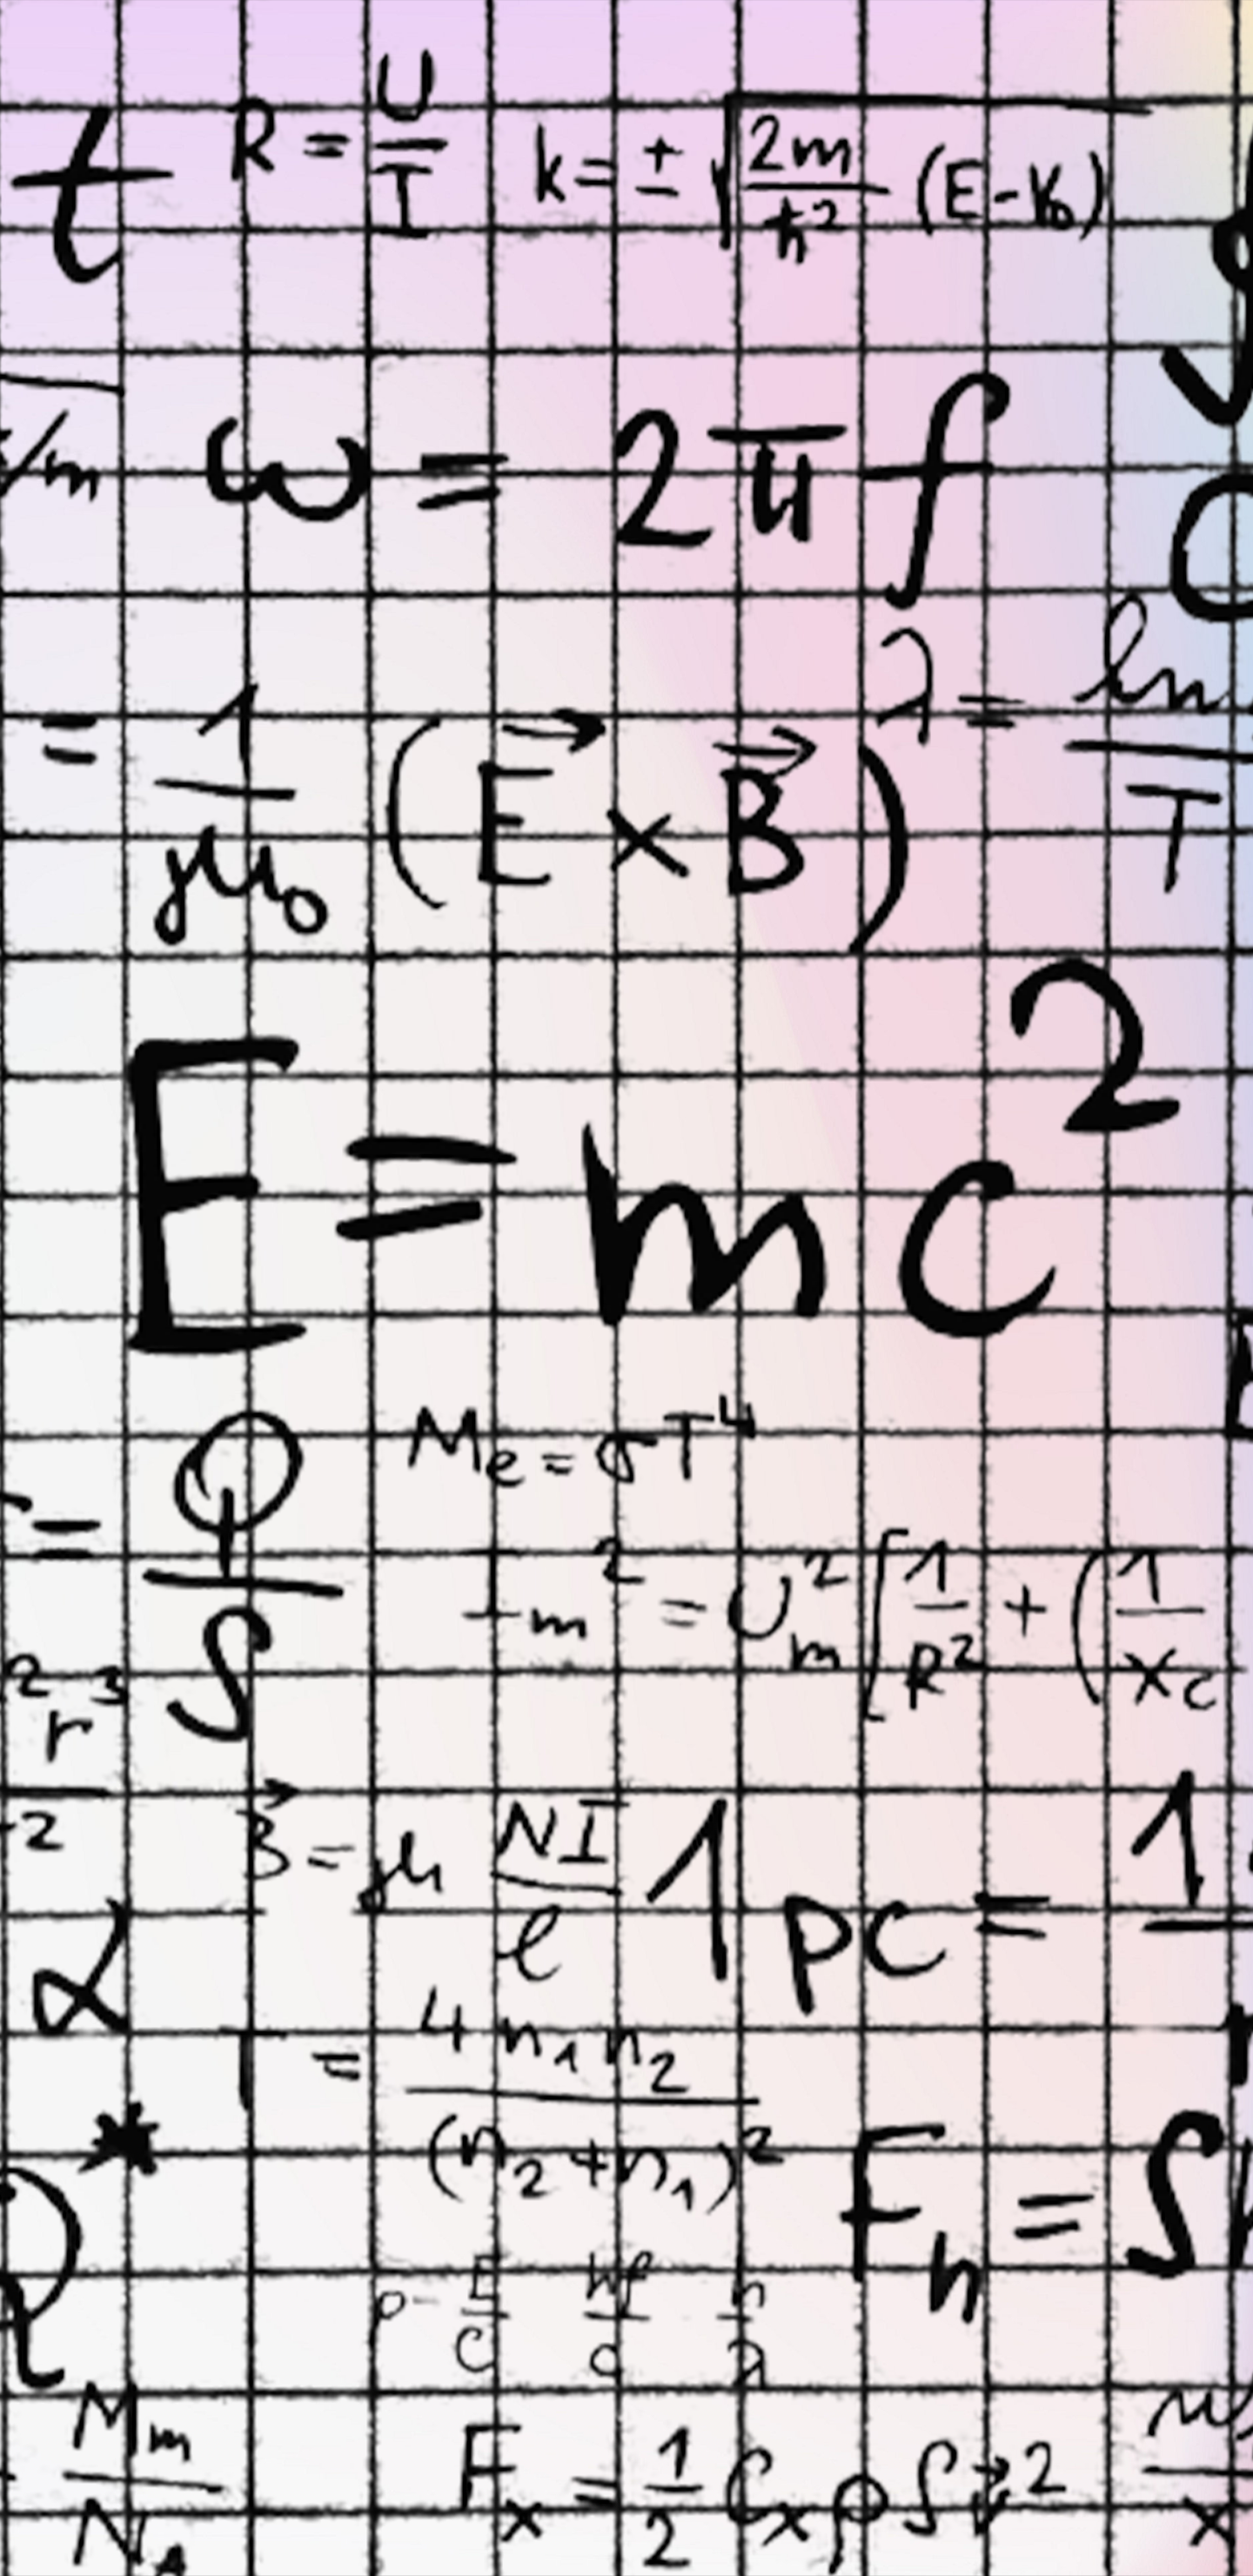 t R = U/I k = ± √(2m/ħ² (E-V₀))
/m ω = 2πf
λ = ln/T
= 1/μ₀ (E⃗ × B⃗)
E = mc²
Mₑ = σT⁴
= Q/S
Iₘ² = Uₘ² [1/R² + (1/X_C
²r³/²
B⃗ = μ NI/ℓ 1 pc = 1
α
T = 4n₁n₂/(n₂+n₁)²
*
Fₕ = Sh
p = E/c hf/c h/λ
Mₘ/N_A
Fₓ = 1/2 CₓρSv⃗²
x